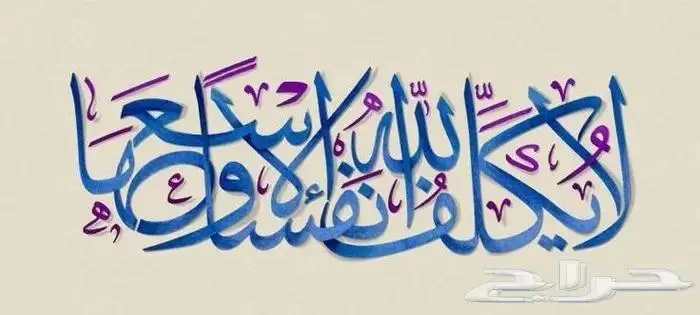 لا يُكَلِّفُ اللَّهُ نَفْسًا إِلَّا وُسْعَهَا
حراج